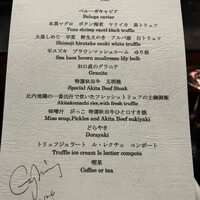 ベルーガキャビア
Beluga caviar
本鮪マグロ ボタン海老 ヤリイカ 黒トリュフ
Tuna shrimp squid black truffle
大葉しめじ 平茸 野生えのき アルバ産 白トリュフ
Shimeji hiratake enoki white truffle
平スズキ ブラウンマッシュルーム ゆり根
Sea bast brown mushroom lily bulb
お口直しのグラニテ
Granite
特選秋田牛 五明焼
Special Akita Beef Steak
比内地鶏の一番出汁で炊いたフレッシュトリュフの土鍋御飯
Akitakomachi rice,with fresh truffle
味噌汁 がっこ 特選秋田牛ひと口すき焼
Miso soup,Pickles and Akita Beef sukiyaki
どらやき
Dorayaki
トリュフジェラート ル・レクチェ コンポート
Truffle ice cream le lectier compote
喫茶
Coffee or tea